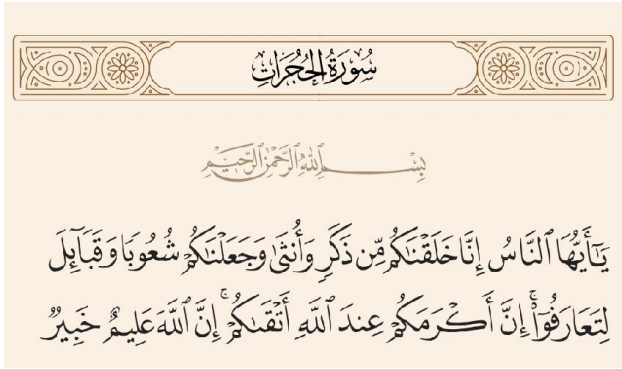 سُورَةُ الحُجُرَاتِ
بِسْمِ ٱللَّهِ ٱلرَّحْمَٰنِ ٱلرَّحِيمِ
يَـٰٓأَيُّهَا ٱلنَّاسُ إِنَّا خَلَقْنَـٰكُم مِّن ذَكَرٍ وَأُنثَىٰ وَجَعَلْنَـٰكُمْ شُعُوبًا وَقَبَآئِلَ
لِتَعَارَفُوٓا۟ ۚ إِنَّ أَكْرَمَكُمْ عِندَ ٱللَّهِ أَتْقَىٰكُمْ ۚ إِنَّ ٱللَّهَ عَلِيمٌ خَبِيرٌ